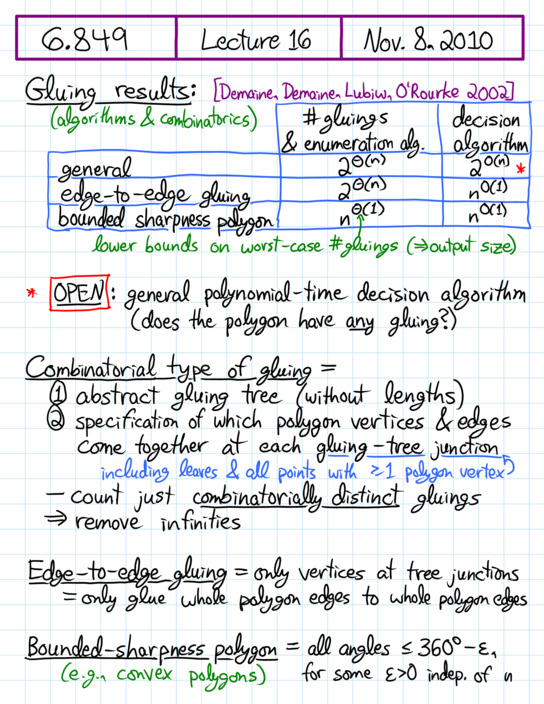 6.849 Lecture 16 Nov. 8, 2010
Gluing results: [Demaine, Demaine, Lubiw, O'Rourke 2002]
(algorithms & combinatorics)
#gluings & enumeration alg. decision algorithm
general 2^Θ(n) 2^O(n) *
edge-to-edge gluing 2^Θ(n) n^O(1)
bounded sharpness polygon n^Θ(1) n^O(1)
lower bounds on worst-case #gluings (⇒output size)
* OPEN: general polynomial-time decision algorithm
(does the polygon have any gluing?)
Combinatorial type of gluing =
① abstract gluing tree (without lengths)
② specification of which polygon vertices & edges
come together at each gluing-tree junction
including leaves & all points with ≥1 polygon vertex
— count just combinatorially distinct gluings
⇒ remove infinities
Edge-to-edge gluing = only vertices at tree junctions
= only glue whole polygon edges to whole polygon edges
Bounded-sharpness polygon = all angles ≤ 360° - ε,
(e.g., convex polygons) for some ε>0 indep. of n